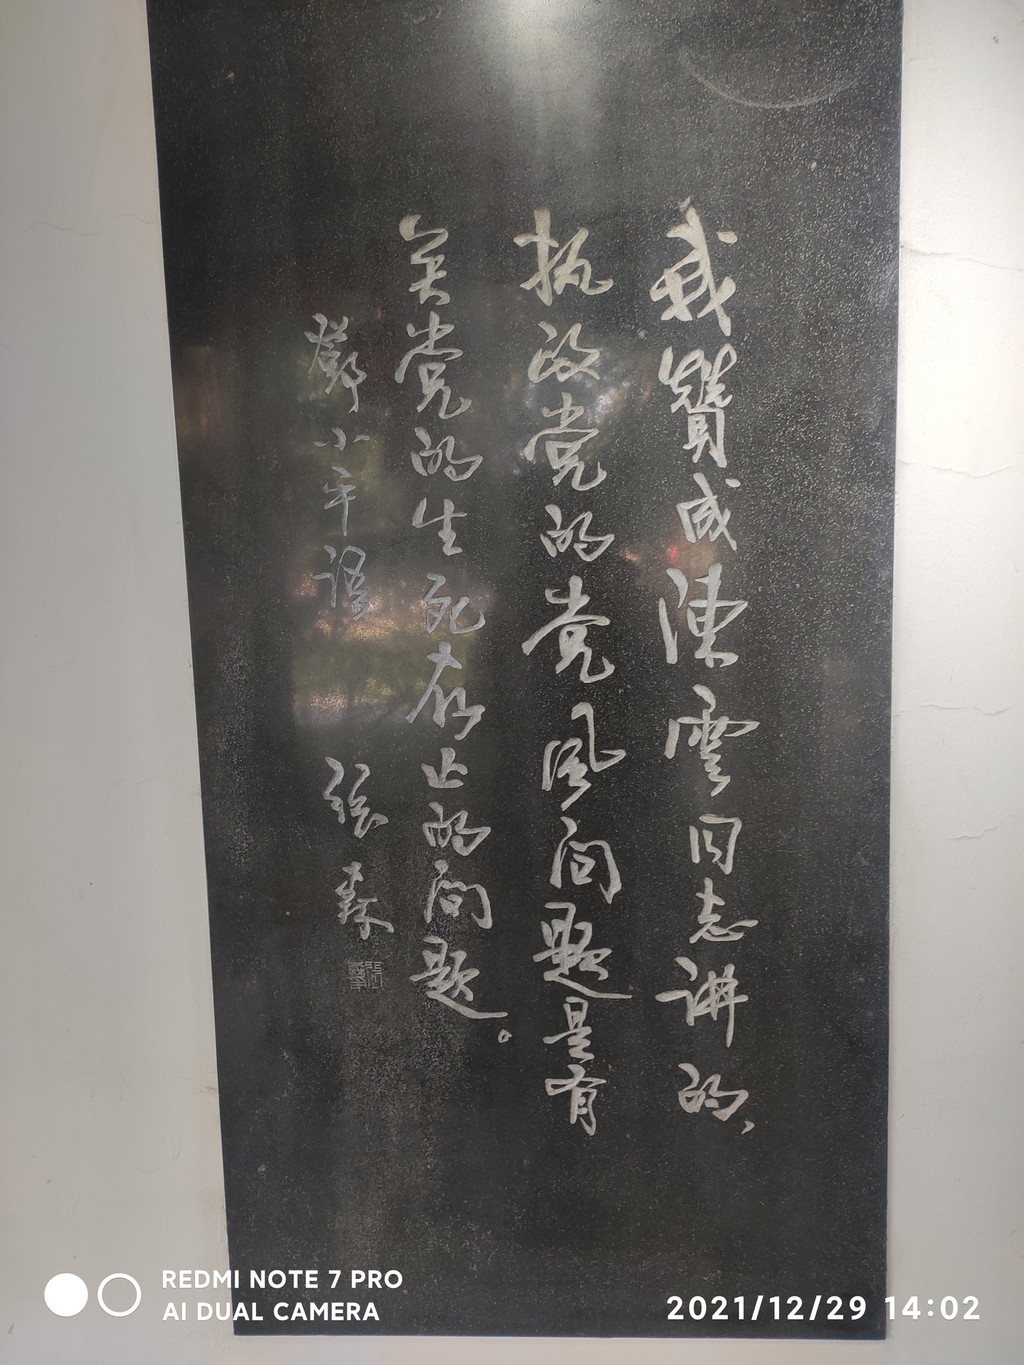 我贊成陳雲同志讲的,
执政党的党风问题是有
关党的生死存亡的问题。
鄧小平语 张森
REDMI NOTE 7 PRO
AI DUAL CAMERA
2021/12/29 14:02